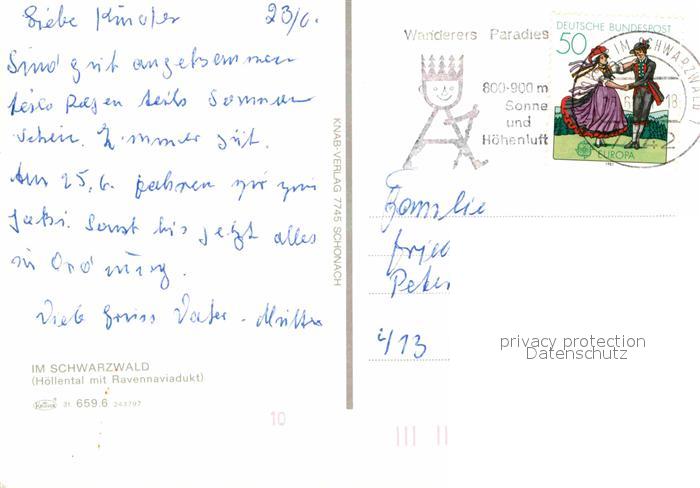 Liebe Kinder 23/6.
Sind gut angekommen
teils Regen teils Sonnen
schein. Zimmer gut.
Am 25.6. fahren wir zum
Sonst bis jetzt alles
in Ordnung.
Viele Gruss Vater - Mutter
IM SCHWARZWALD
(Höllental mit Ravennaviadukt)
31 659.6 243797
10
KNAB-VERLAG 7745 SCHONACH
Wanderers Paradies
800-900 m
Sonne
und
Höhenluft
DEUTSCHE BUNDESPOST
50
IM SCHWARZWALD
EUROPA
Familie
Fried
Peter
privacy protection
Datenschutz